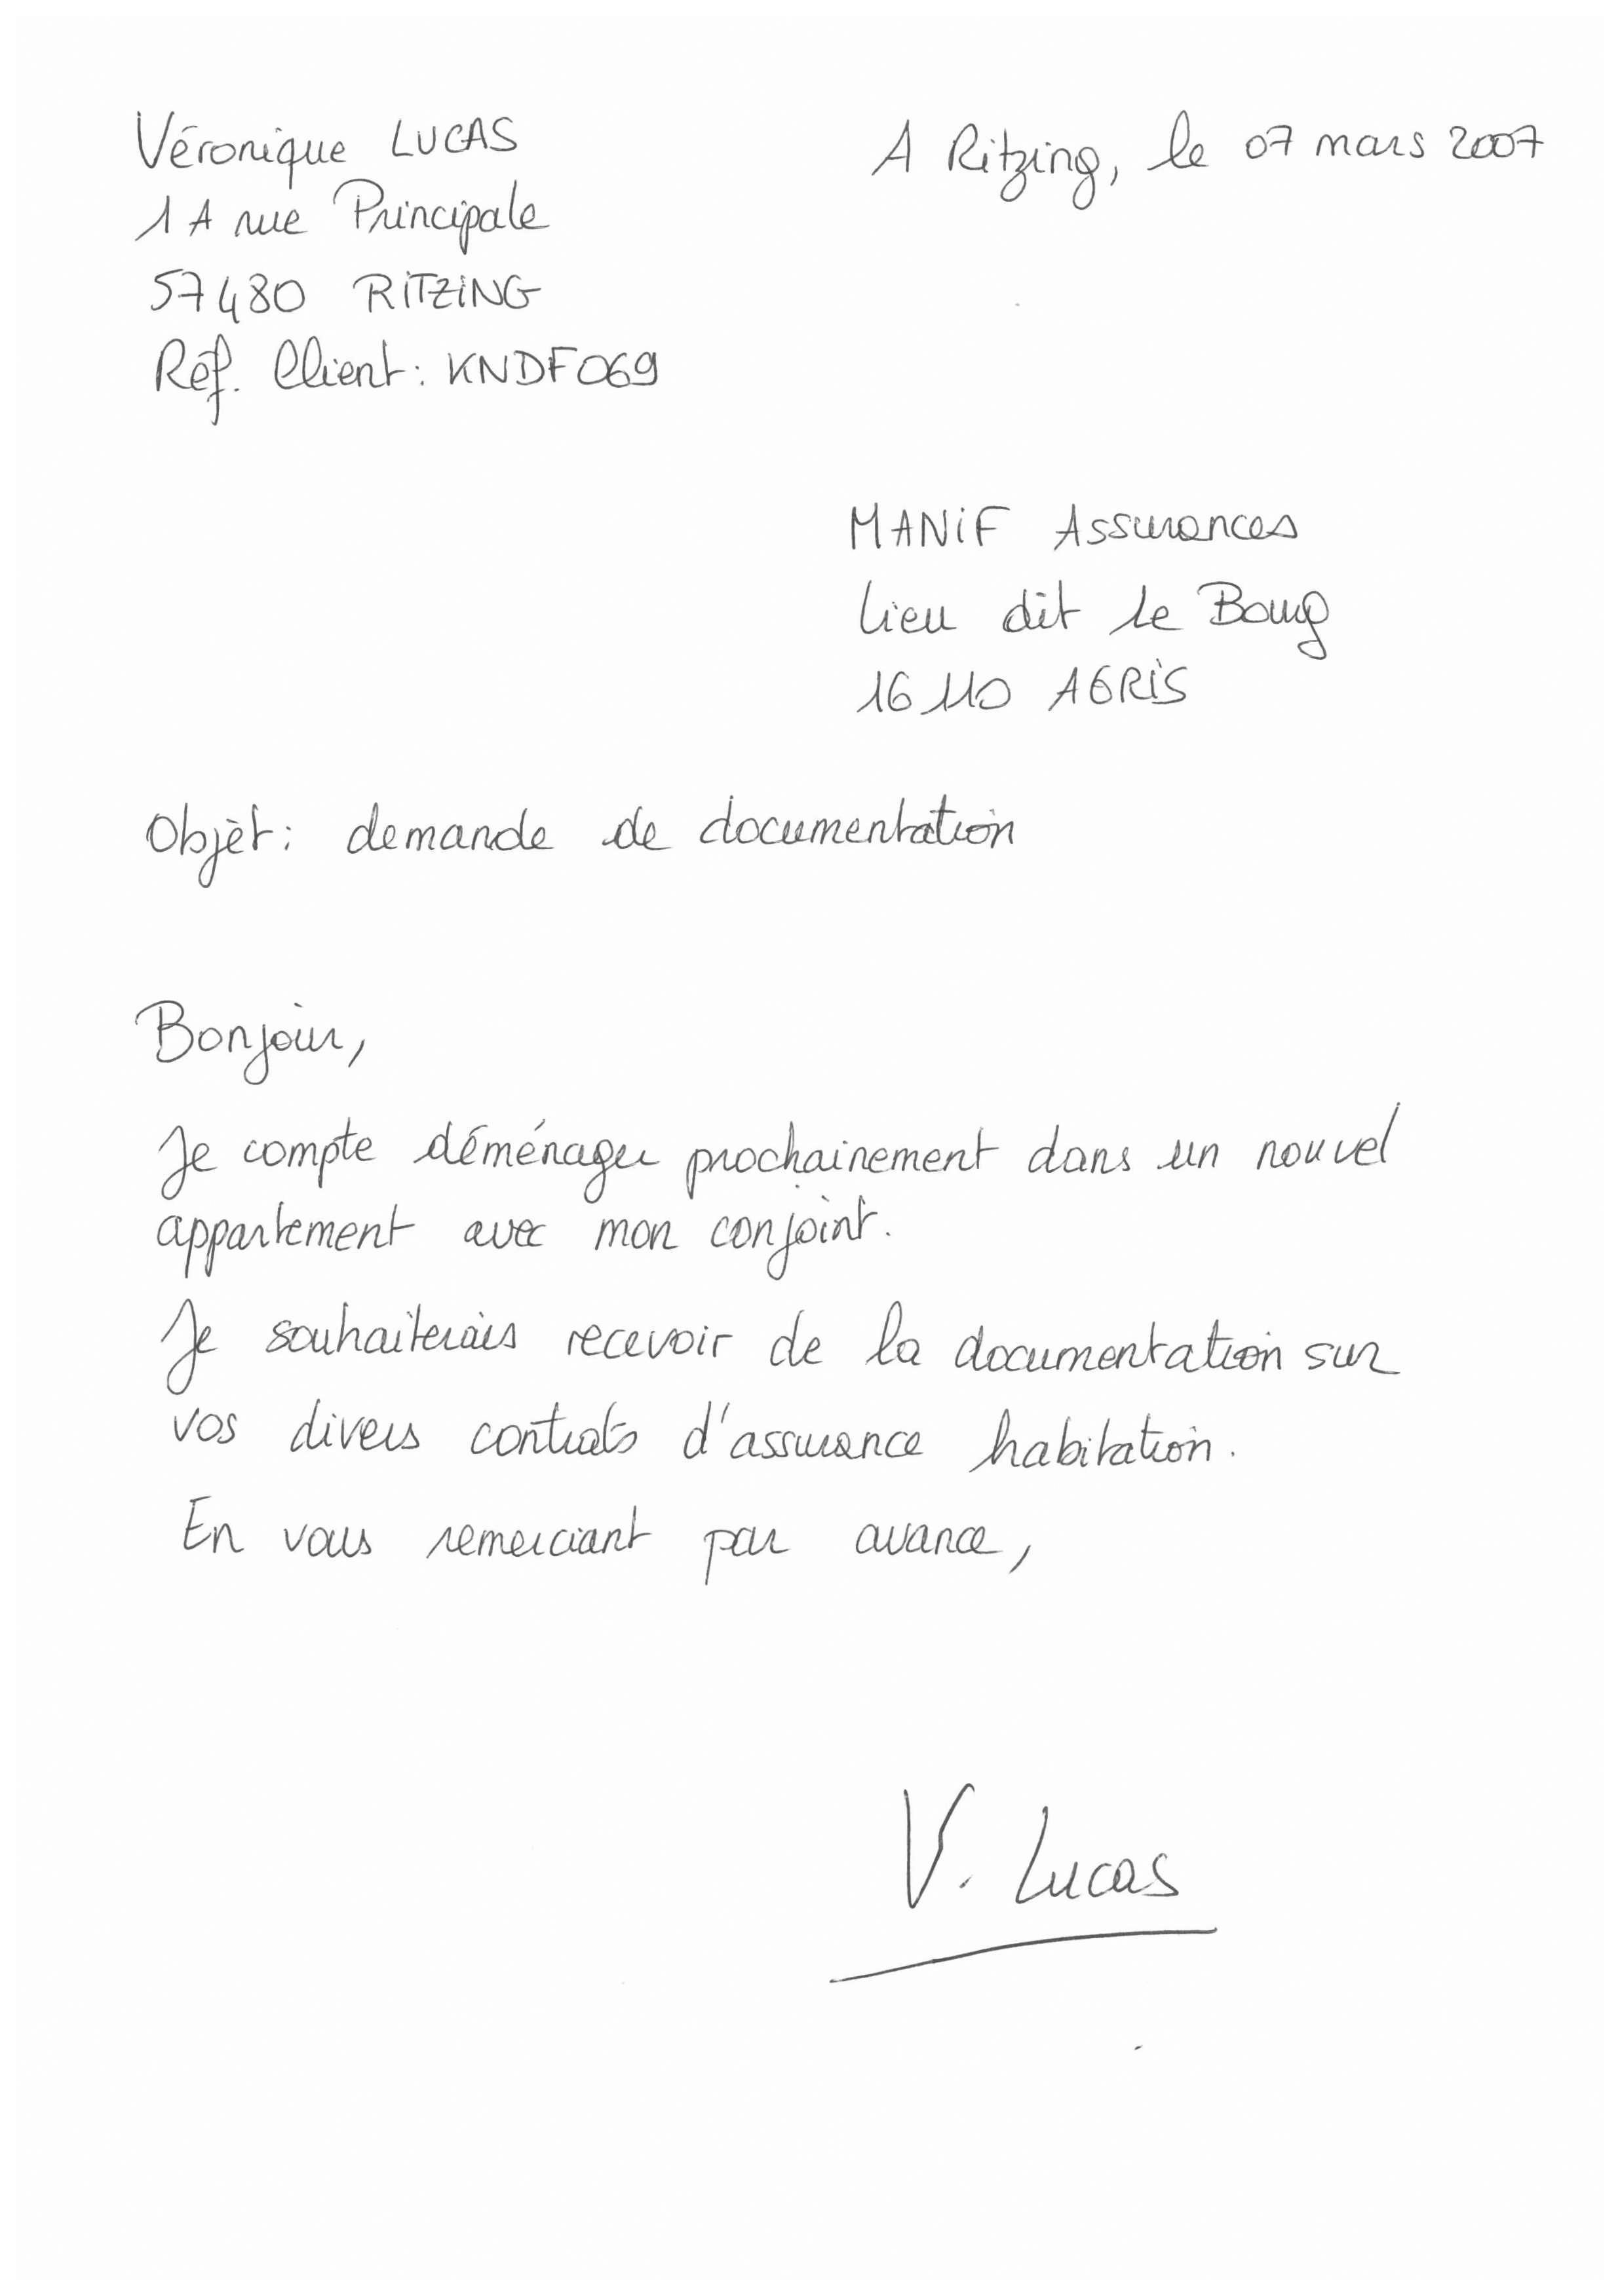 Véronique LUCAS
A Ritzing, le 07 mars 2007
1A rue Principale
57480 RITZING
Réf. Client: KNDF069
MANIF Assurances
lieu dit le Bourg
16110 AGRIS
Objet: demande de documentation
Bonjour,
Je compte déménager prochainement dans un nouvel
appartement avec mon conjoint.
Je souhaiterais recevoir de la documentation sur
vos divers contrats d'assurance habitation.
En vous remerciant par avance,
V. Lucas